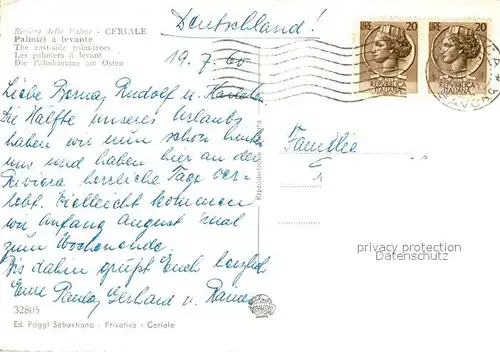 Deutschland!
Riviera delle Palme - CERIALE
Palmizi a levante
The east-side palm-trees
Les palmiers à levant
Die Palmbaeume am Osten
19.7.60
LIRE 20
LIRE 20
REPUBBLICA ITALIANA
REPUBBLICA ITALIANA
SAVONA
Liebe Rudolf u.
Die Hälfte unseres Urlaubs
haben wir nun schon hinter
uns und haben hier an der
Riviera herrliche Tage ver-
lebt. Vielleicht kommen
wir Anfang August mal
zum Wochenende.
Bis dahin grüßt Euch herzlich
Eure Paula, Gerhard u.
Familie
privacy protection
Datenschutz
32805
Ed. Poggi Sebastiano - Privativa - Ceriale